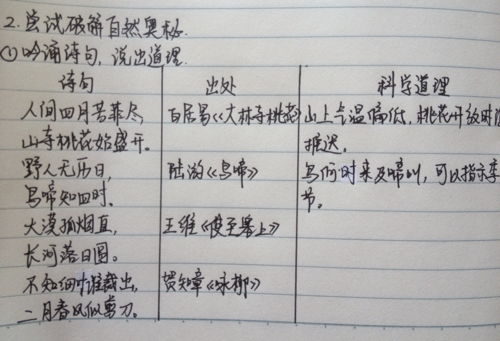 2.尝试破解自然奥秘.
①吟诵诗句,说出道理.
诗句 出处 科学道理
人间四月芳菲尽, 白居易《大林寺桃花》 山上气温偏低,桃花开放时
山寺桃花始盛开。 推迟.
野人无历日, 陆游《鸟啼》 鸟何时来及啼叫,可以指示季
鸟啼知四时. 节。
大漠孤烟直, 王维《使至塞上》
长河落日圆。
不知细叶谁裁出, 贺知章《咏柳》
二月春风似剪刀。